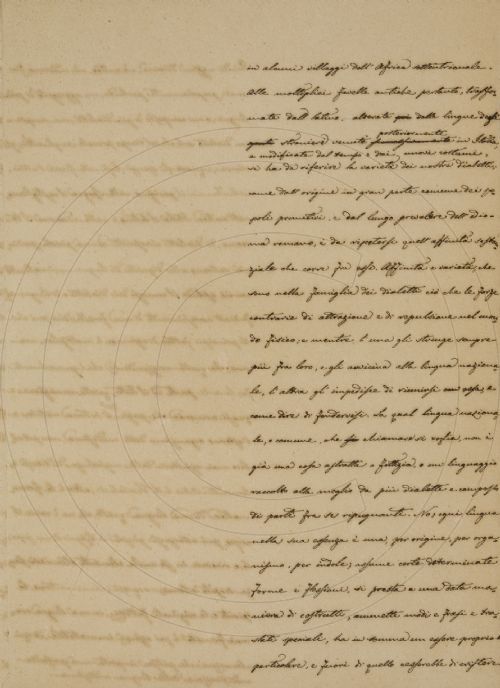 in alcuni villaggi dell'Africa settentrionale.
Alle molteplici favelle antiche pertanto, trasfor-
mate dall latino, alterate poi dalle lingue degli
stranieri venuti posteriormente in Italia,
e modificate dal tempo e dai nuovi costumi,
si ha da riferire la varietà dei nostri dialetti,
come dall'origine in gran parte comune dei po-
poli primitivi, e dal lungo prevalere dell'Idio-
ma romano, è da ripetersi quell'affinità sostan-
ziale che corre fra essi. Affinità e varietà, che
sono nella famiglia dei dialetti ciò che le forze
contrarie di attrazione e di repulsione nel mon-
do fisico; e mentre l'una gli stringe sempre
più fra loro, e gli avvicina alla lingua naziona-
le, l'altra gli impedisce di riunirsi con essa, e
come dire di fondervisi. La qual lingua naziona-
le, o comune, che chiamare si voglia, non è
già una cosa astratta o fittizia, o un linguaggio
raccolto alla meglio da più dialetti e composto
di parti fra se ripugnanti. No; ogni lingua
nella sua essenza è una, per origine, per orga-
nismo, per indole; assume certe determinate
forme e flessioni, si presta a una data ma-
niera di costrutti, ammette modi e frasi e tra-
slati speciale, ha in somma un essere proprio e
particolare, e fuori di quello cesserebbe di esistere